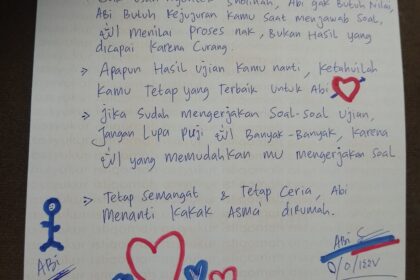 Sholihah, Abi gak Butuh Nilai,
Abi Butuh Kejujuran Kamu Saat Menjawab Soal,
الله Menilai Proses nak, Bukan Hasil yang
dicapai Karena Curang.
> Apapun Hasil Ujian Kamu nanti, Ketahuilah
Kamu Tetap yang Terbaik Untuk Abi
> Jika Sudah Mengerjakan Soal-Soal Ujian,
Jangan Lupa Puji الله Banyak-Banyak, Karena
الله yang memudahkan mu mengerjakan Soal
> Tetap Semangat & Tetap Ceria, Abi
Menanti Kakak Asma' dirumah.
ABi
ABi